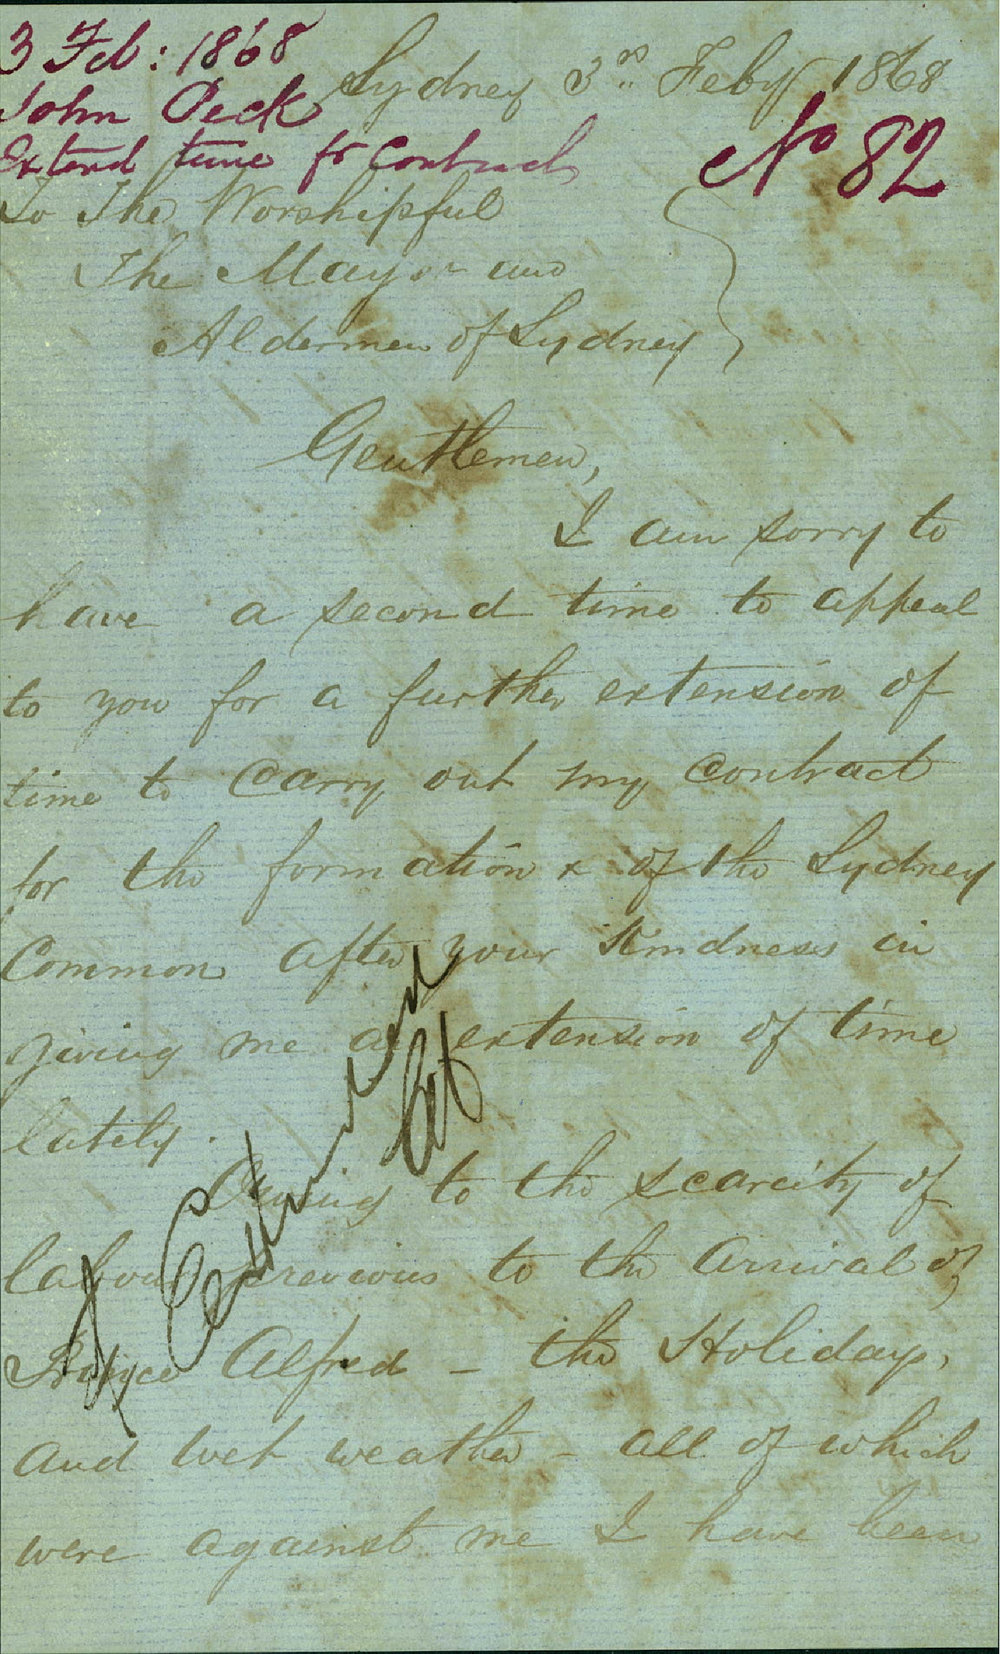 3 Feb: 1868
John Peck
Extend time for Contract
No 82
Sydney 3rd Feby 1868
To The Worshipful
The Mayor and
Aldermen of Sydney
Gentlemen,
I am sorry to
have a second time to appeal
to you for a further extension of
time to Carry out my Contract
for the formation & of the Sydney
Common after your Kindness in
giving me an extension of time
lately.
Owing to the scarcity of
labour previous to the Arrival of
Prince Alfred – the Holidays,
and wet weather – all of which
were against me I have been